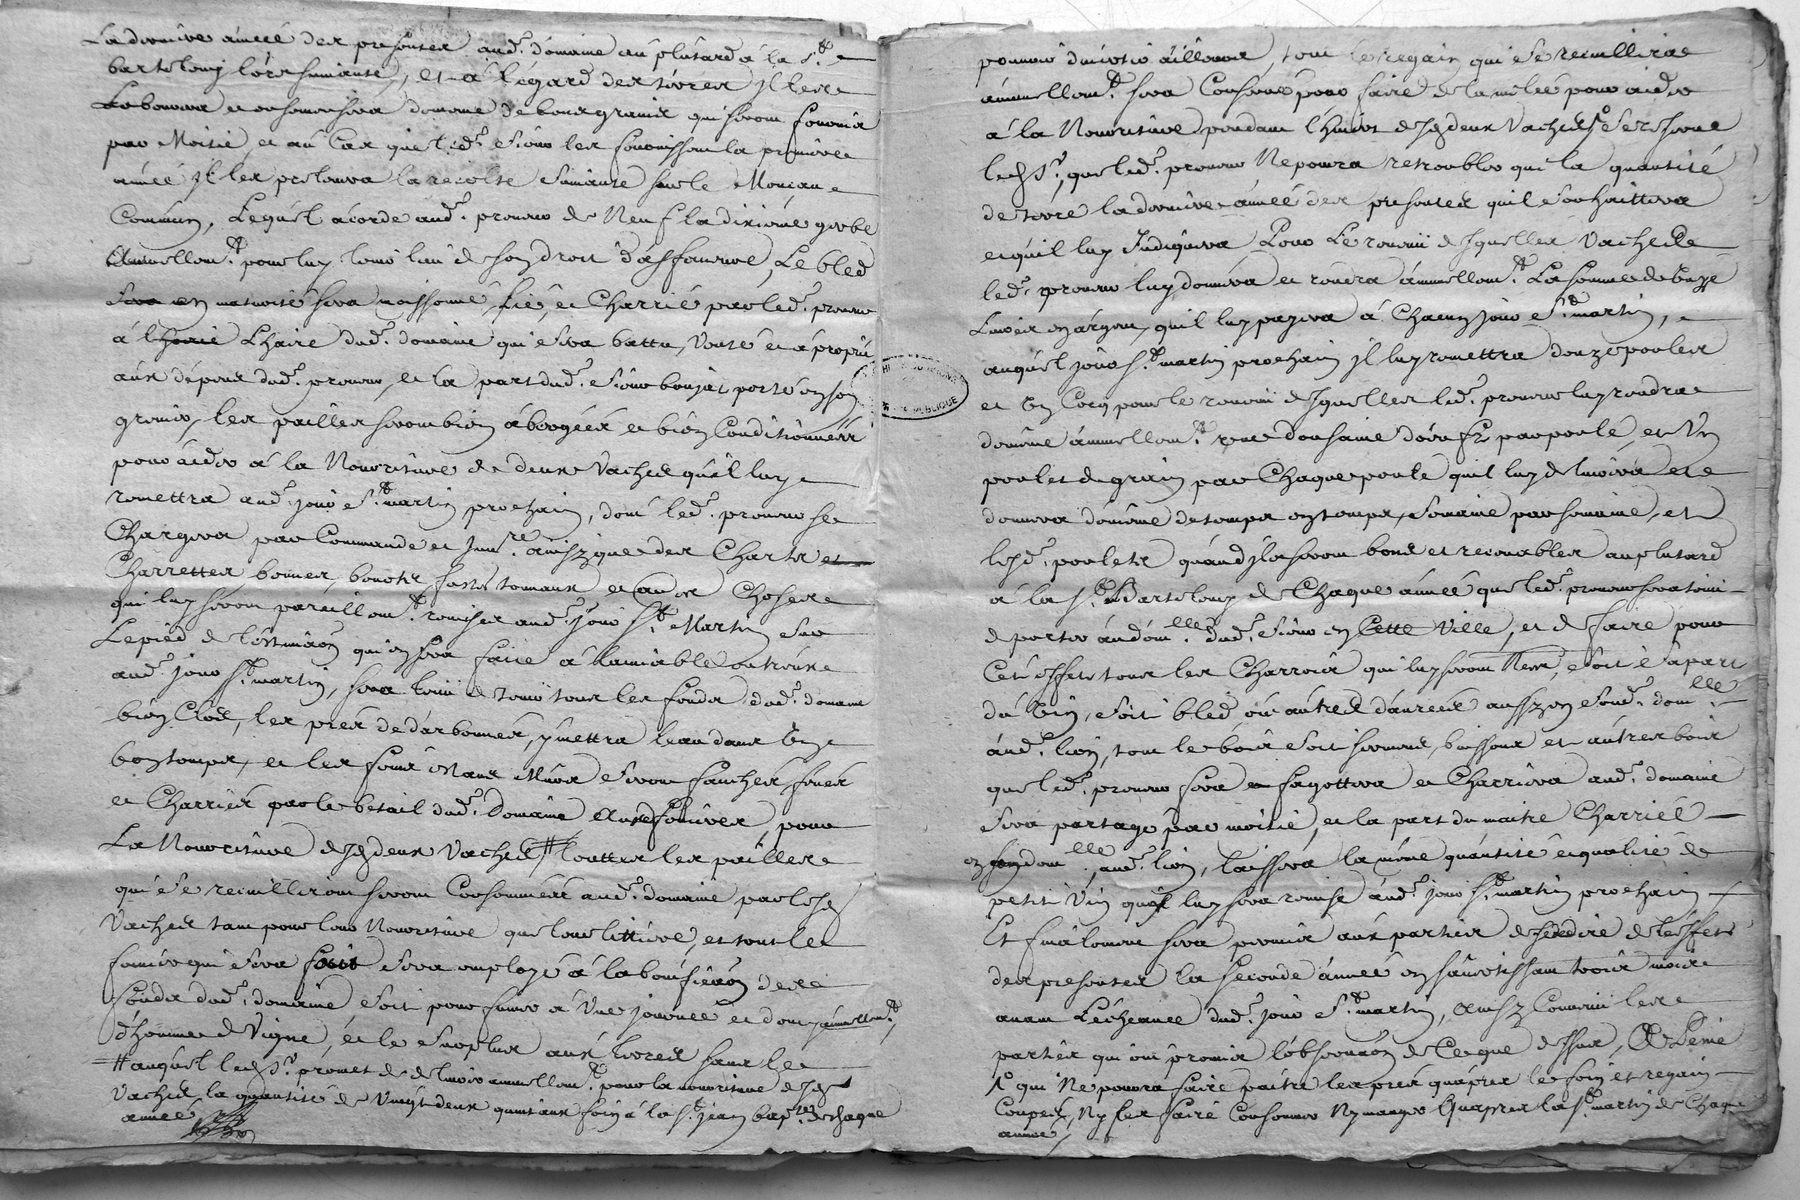 La derniere année des presentes aud.t domaine au plutard à la S.t
bartelomy lors suivante, et à l'égard des terres il les
Labourera et ensemencera de meme de bons grains qui seront fournis
par Moitié, et au Cas que led.t Sieur les fournissent la premiere
année il les prelevera la recolte suivante sur le Monceau
Commun, Lequel acorde aud.t preneur de Neuf la dixieme gerbe
Annuellem.t pour luy tenir lieu de son droit d'affanure, Le bled
en maturité sera moissonné, lié, et Charrié par led.t preneur
à l'haire dud.t domaine qui sera battu, Venté et apropri
aux dépens dud.t preneur, et la part dud.t Sieur porté en son
grenier, les pailles seront bien et bien Conditionnées
pour aider à la Nourriture de deux Vaches qu'il luy
remettra aud.t jour S.t martin prochain, dont led.t preneur se
Chargera par Commande et ainsy que des Chars et
Charrettes bennes, benots, tonneaux et autres Choses
qui luy seront pareillem.t remises aud.t jour S.t Martin sur
Le pied de l'estimaon qui en sera faite à lamiable entr'eux
aud.t jour S.t martin, sera tenu de tenir tous les fonds dud.t domaine
bien Clos, les prés y mettra leau dans Un
bon temps, et les foins etans Murs seront fauchés, fenés
et Charriés par le betail dud.t Domaine pour
La Nourriture desd deux Vaches # touttes les pailles
qui se recuilliront seront Consommées aud.t domaine par lesd
Vaches tant pour leur Nourriture que leur littiere, et tout le
fumier qui sera fait sera employé à la bonificaon des
fonds dud.t domaine, soit pour fumer à Une journée et demy annuellem.t
d'homme de Vigne, et le surplus aux terres sans le
# auquel led S.r promet de delivrer annuellem.t pour la nourriture desd
Vaches la quantité de Vingt deux quintaux foin à la S.t jean bap.te de chaque
année
pouvoir divertir ailleurs, tout le regain qui se recuillira
annuellem.t sera Conservé pour faire de la melée pour aider
à la Nourriture pendant l'hivert desd deux Vaches, se reserve
led S.r, que led.t preneur Ne poura retroubler que la quantité
de terre la derniere année des presentes qu'il souhaittera
et qu'il luy Indiquera Pour Le revenu desquelles Vaches
led.t preneur luy donnera et payera annuellem.t La somme de
Livres en argent, qu'il luy payera à Chacun jour S.t martin,
auquel jour S.t martin prochain il luy remettra douze poules
et Un Coq pour le revenu desquelles led.t preneur luy rendra
de même annuellem.t une dousaine d'oeufs par poule, et Un
poulet de grain par Chaque poule qu'il luy delivrera et
donnera de même de temps en temps, Semaine par semaine, et
lesd.t poulets quand ils seront bons et recevables au plutard
à la S.t Barteloumy de Chaque année que led.t preneur sera tenu
de porter au dom.lle dud.t Sieur en Cette Ville, et de faire pour
Cet effet tous les Charrois qui luy seront Ness, soit sa part
du Vin, soit bled ou autres danrées aussy en sond.t dom.lle
aud.t lieu, tout le bois soit serment, buissons et autres bois
que led.t preneur fera et fagottera et Charriera aud.t domaine
Sera partagé par moitié, et la part du maitre Charriée
en son dom.lle aud.t lieu, laissera la même quantité et qualité de
petit Vin qu'il luy sera remise aud.t jour S.t martin prochain
Et finalement sera permis aux parties de se dedire de l'effet
des presentes la seconde année en s'avertissant trois mois
avant L'écheance dud.t jour S.t martin, ainsy Convenu les
parties qui ont promis l'observaon de Ce que dessus, A Peine
# qui Ne poura faire paitre les prés qu'après les foins et regain
Coupés, Ny les faire Consommer Ny manger qu'après la S.t martin de Chaque
année